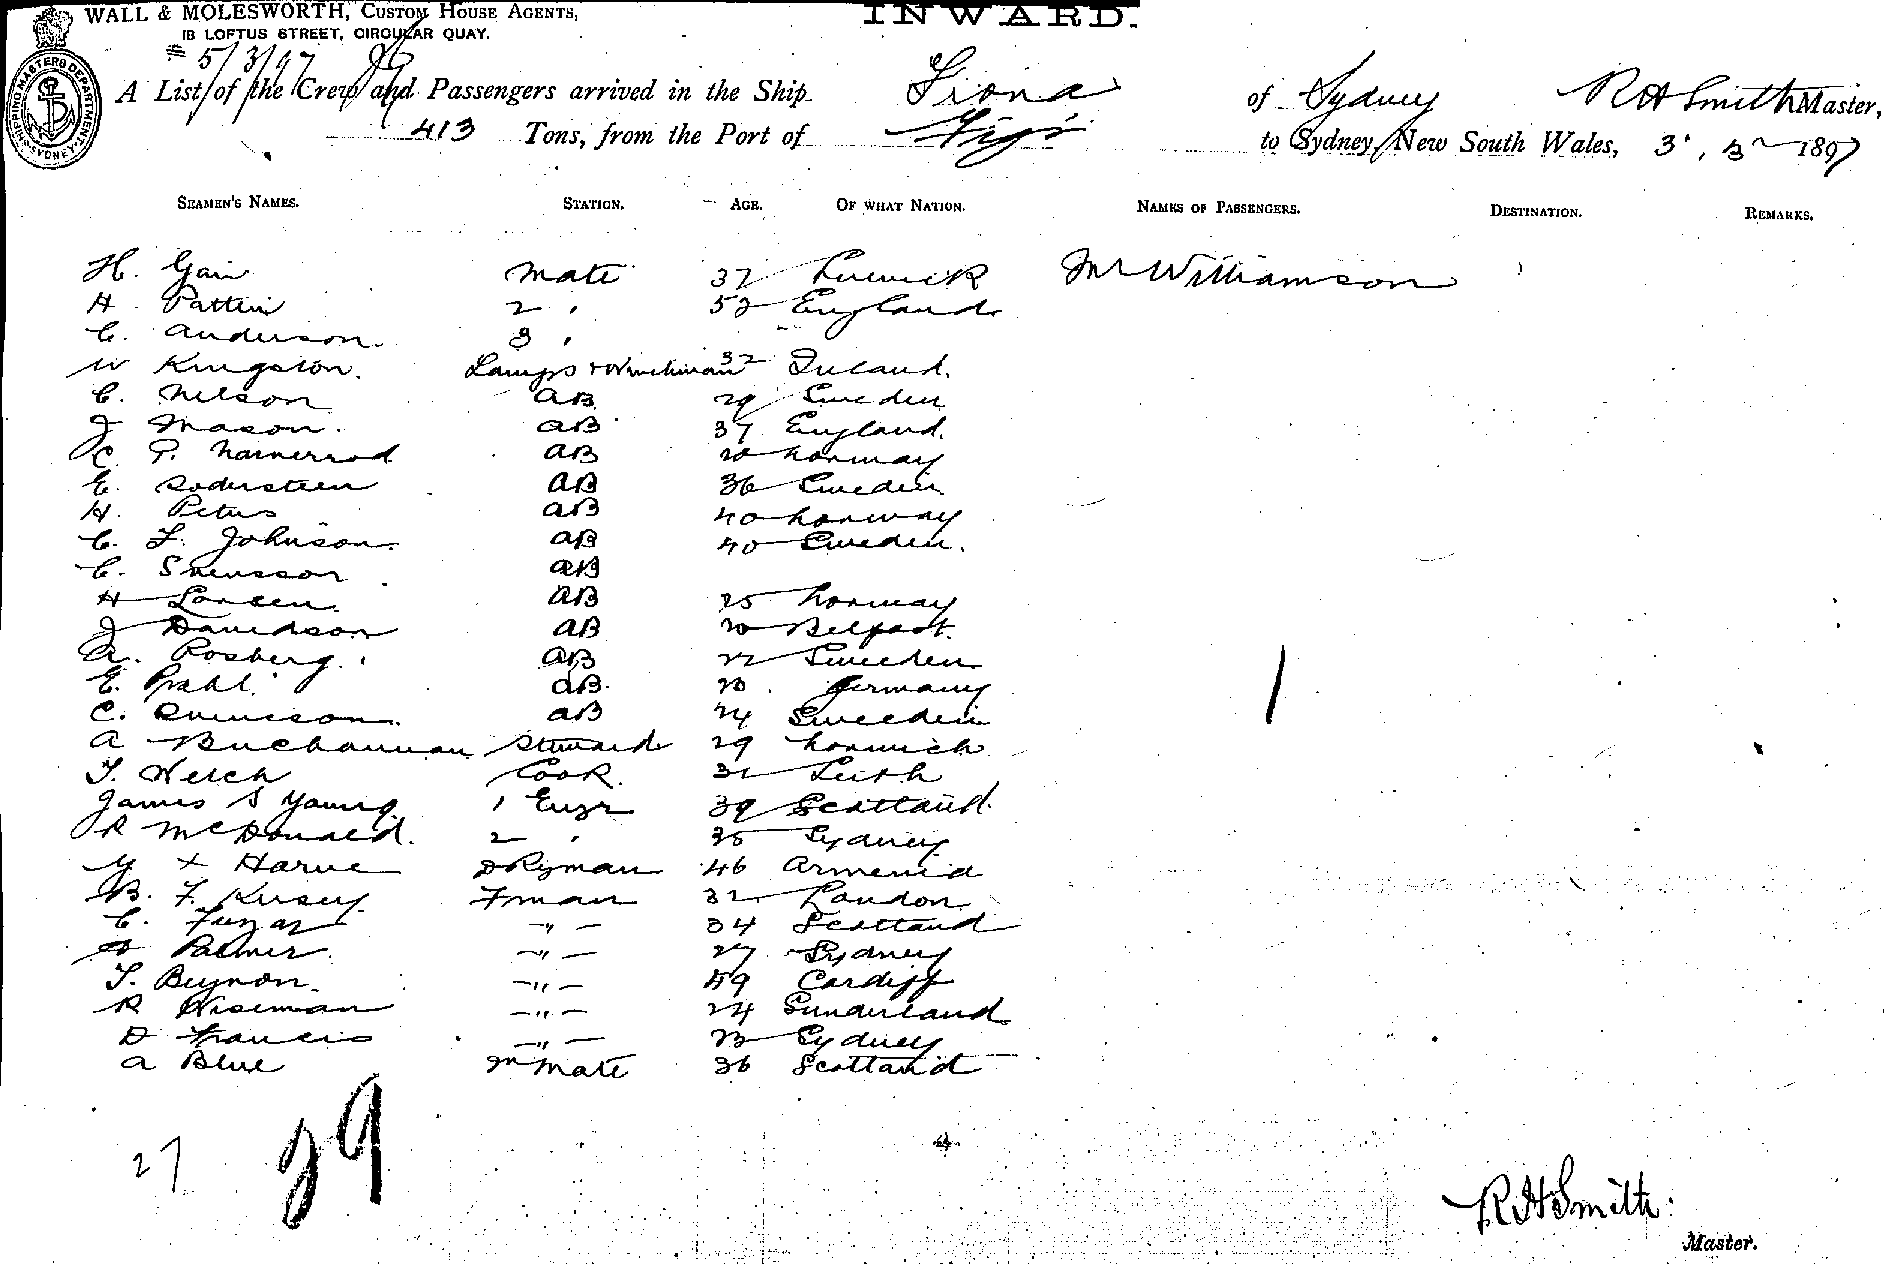 WALL & MOLESWORTH, CUSTOM HOUSE AGENTS,
1B LOFTUS STREET, CIRCULAR QUAY.
INWARD.
5/3/97
SHIPPING MASTERS DEPARTMENT SYDNEY
A List of the Crew and Passengers arrived in the Ship Fiona of Sydney R H Smith Master,
413 Tons, from the Port of Fiji to Sydney New South Wales, 3. 3 1897
SEAMEN'S NAMES. STATION. AGE. OF WHAT NATION. NAMES OF PASSENGERS. DESTINATION. REMARKS.
H. Gair Mate 37 Lerwick Mr Williamson
H Patten 2 " 52 England
C. Anderson. 3 "
W Kingston. Lamps & Winchman 32 Ireland.
C. Nelson AB 29 Sweden
J Mason. AB 37 England.
C P. AB 20 Norway
E. Sodersteen AB 36 Sweden
H. Peters AB 40 Norway
C. F. Johnson. AB 40 Sweden.
C. Svensson AB
H Larsen AB 25 Norway
J Davidson AB 20 Belfast.
A. Rosberg. AB 22 Sweeden
E. AB. 20 Germany
C. Svensson. AB 24 Sweeden
A Buchannan Steward 29
T. Welch Cook. 31 Leith
James S Young. 1 Engr 39 Scotland.
R McDonald. 2 " 35 Sydney
X Harve DKyman 46 Armenia
B. F. Kersey. Fman 32 London
C. -"- 34 Scotland
Palmer. -"- 27 Sydney
T. Beynon. -"- 59 Cardiff
R Wiseman -"- 24 Sunderland
D Francis -"- 23 Sydney
A Blue 2n Mate 36 Scotland
27 29
R H Smith.
Master.